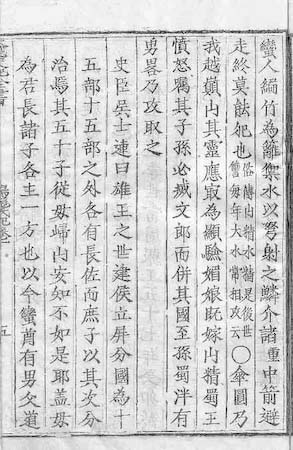 蠻人編竹為籬禦水以弩射之鱗介諸重中箭避
走終莫能犯也俗傳山精水精是後世讐每年大水常相攻云○傘圓乃
我越巔山其靈應最為顯驗媚娘既嫁山精蜀王
憤怒囑其子孫必滅文郎而併其國至孫蜀泮有
勇畧乃攻取之
史臣吳士連曰雄王之世建侯立屏分國為十
五部十五部之外各有長佐而庶子以其次分
治焉其五十子從母歸山安知不如是耶蓋母
為君長諸子各主一方也以今蠻酋有男父道
五